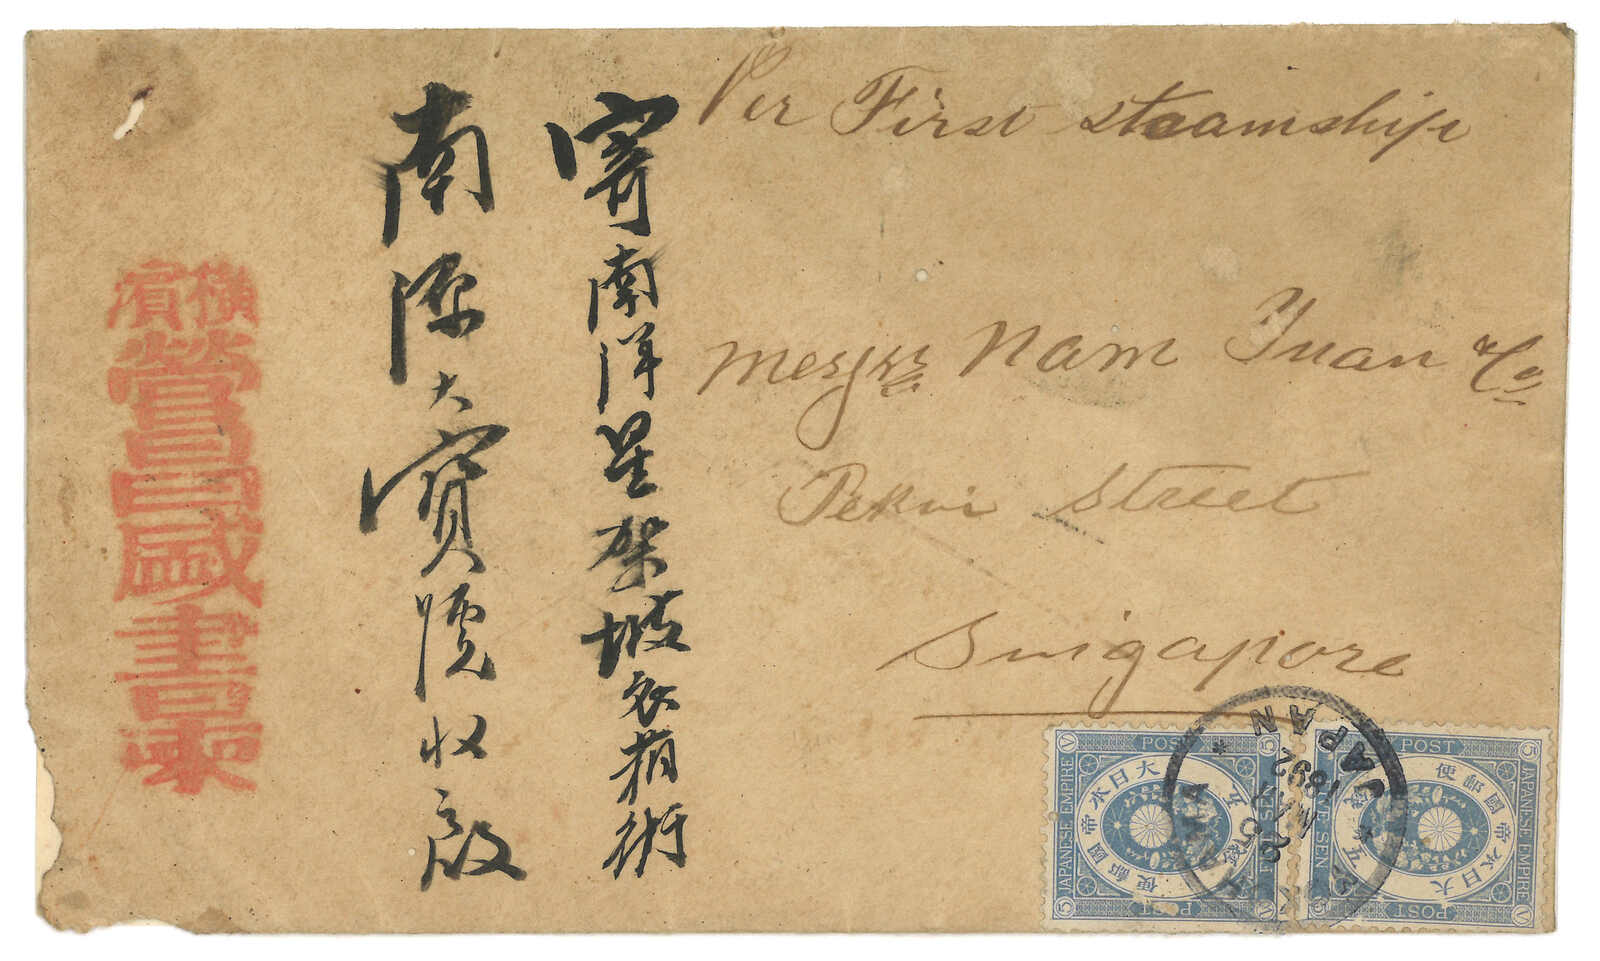 Per First steamship
Messrs Nam Yuan & Co
Pekin Street
Singapore
寄南洋星架坡衣箱街
南源大寶號收啟
橫濱
盛書柬
POST
JAPANESE EMPIRE
大日本帝國郵便
SEN
POST
5
V
5
POST
JAPANESE EMPIRE
大日本帝國郵便
五
SEN
POST
5
V
JAPAN
1892